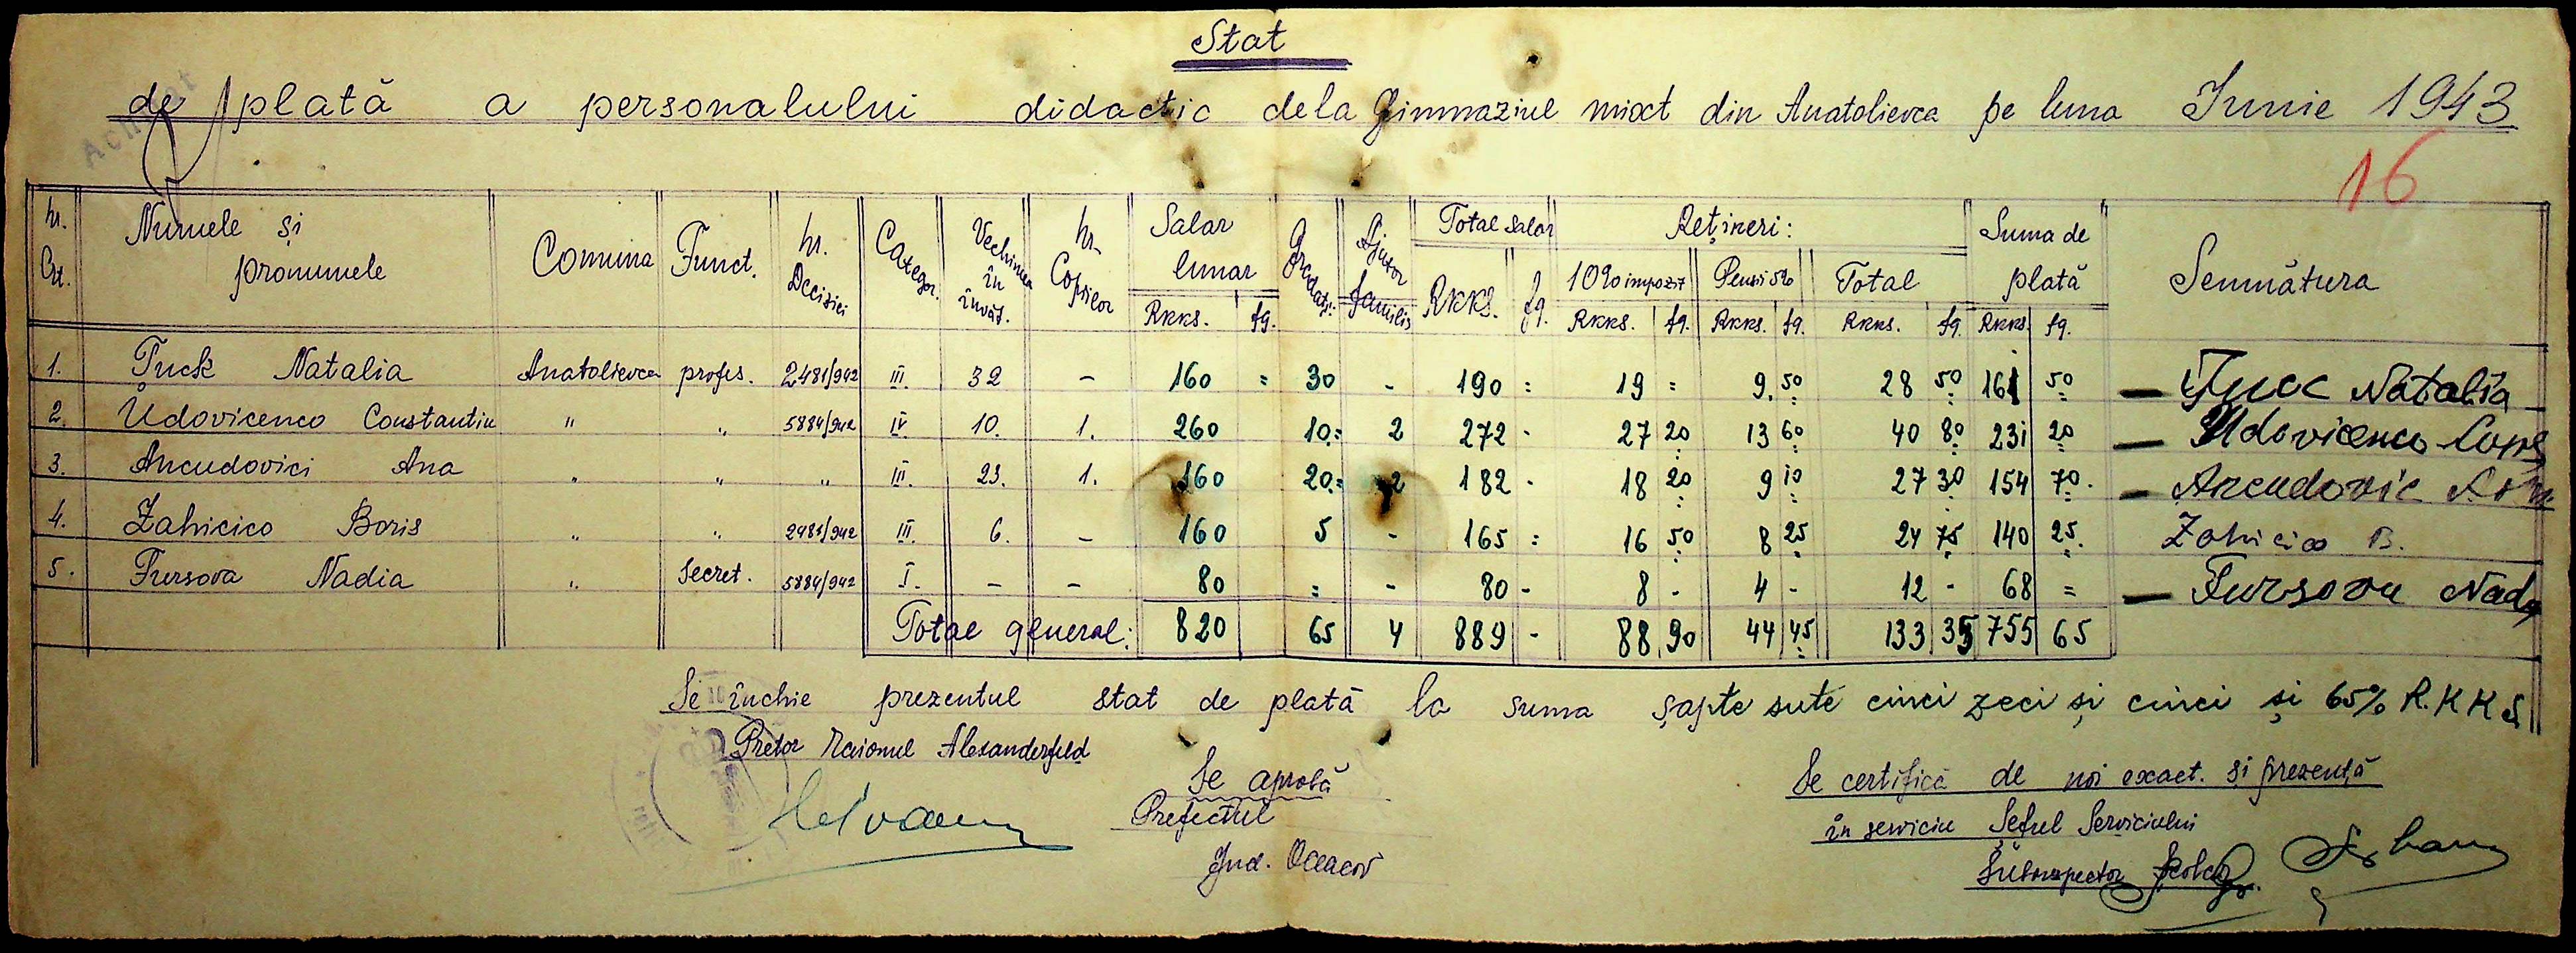 Stat
de plată a personalului didactic dela Gimnaziul mixt din Anatolievca pe luna Iunie 1943
16
Nr. Crt. Numele și pronumele Comuna Funct. Nr. Deciziei Categor. Vechimea în învăț. Nr. Copiilor Salar lunar RKKS. fg. Gradații Ajutor familis Total salar RKKS. fg. Rețineri: 10% impozit RKKS. fg. Pensi 5% RKKS. fg. Total RKKS. fg. Suma de plată RKKS. fg. Semnătura
1. Țuck Natalia Anatolievca profes. 2481/942 III. 32 - 160 = 30 - 190 = 19 = 9.50 28 50 161 50 - Țucc Natalia
2. Udovicenco Constantin " " 5884/942 IV. 10. 1. 260 10.= 2 272 - 27 20 13 60 40 80 231 20 - Udovicenco Cons
3. Ancudovici Ana " " " III. 23. 1. 160 20.= 2 182 - 18 20 9 10 27 30 154 70. - Ancudovic
4. Zahicico Boris " " 2481/942 III. 6. - 160 5 - 165 = 16 50 8 25 24 75 140 25. Zahicico B.
5. Fursova Nadia " Secret. 5884/942 I. - - 80 = - 80 - 8 - 4 - 12 - 68 = - Fursova Nadia
Total general: 820 65 4 889 - 88 90 44 45 133 35 755 65
Se închie prezentul stat de plată la suma șapte sute cinci zeci și cinci și 65% R.K K S
Pretor Raionul Alexanderfeld
Se aprobă
Prefectul
Jud. Oceacov
Se certifică de noi exact. și prezență
în serviciu Șeful Serviciului
Subinspector Școlar